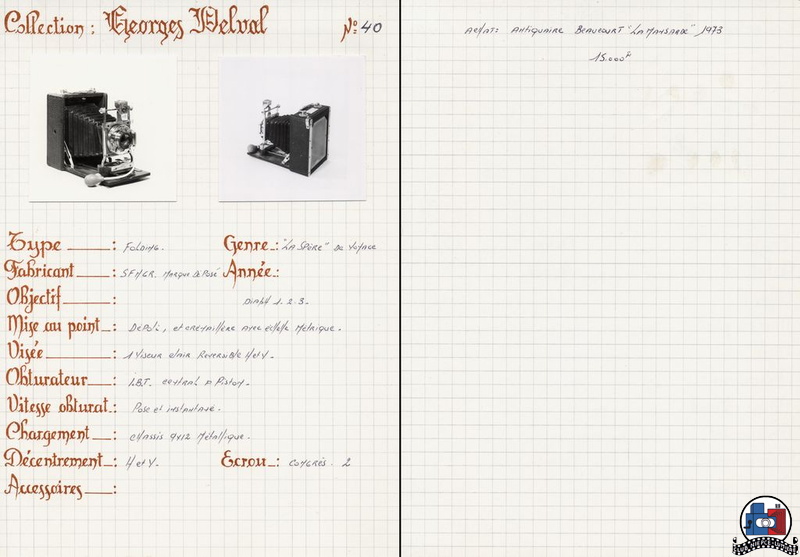 Collection : Georges Delval N° 40
Type : Folding. Genre : "La Spère" de Voyage
Fabricant : SFHGR. Marque Déposé Année :
Objectif : Diaph 1. 2. 3.
Mise au point : Dépoli, et crémaillère avec échelle Métrique.
Visée : 1 Viseur clair Réversible H et V.
Obturateur : L.B.T. central à Piston.
Vitesse obturat. : Pose et instantané.
Chargement : châssis 9x12 Métallique.
Décentrement : H et V. Ecrou : Congrès. 2
Accessoires :
Achat : Antiquaire Beaucourt "La Mansarde" 1973
15.000F